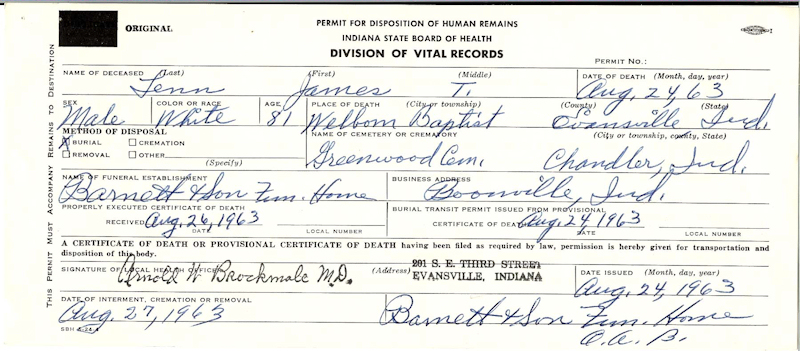 ORIGINAL
PERMIT FOR DISPOSITION OF HUMAN REMAINS
INDIANA STATE BOARD OF HEALTH
DIVISION OF VITAL RECORDS
PERMIT NO.:
THIS PERMIT MUST ACCOMPANY REMAINS TO DESTINATION
NAME OF DECEASED (Last) (First) (Middle) DATE OF DEATH (Month, day, year)
Fenn James T. Aug. 24, 63
SEX COLOR OR RACE AGE PLACE OF DEATH (City or township) (County) (State)
Male White 81 Welborn Baptist Evansville Ind.
METHOD OF DISPOSAL NAME OF CEMETERY OR CREMATORY (City or township, county, State)
X BURIAL ☐ CREMATION
☐ REMOVAL ☐ OTHER (Specify)
Greenwood Cem. Chandler, Ind.
NAME OF FUNERAL ESTABLISHMENT BUSINESS ADDRESS
Barnett & Son Fun. Home Boonville, Ind.
PROPERLY EXECUTED CERTIFICATE OF DEATH BURIAL TRANSIT PERMIT ISSUED FROM PROVISIONAL
RECEIVED Aug. 26, 1963 CERTIFICATE OF DEATH Aug. 24 1963
DATE LOCAL NUMBER DATE LOCAL NUMBER
A CERTIFICATE OF DEATH OR PROVISIONAL CERTIFICATE OF DEATH having been filed as required by law, permission is hereby given for transportation and
disposition of this body.
SIGNATURE OF LOCAL HEALTH OFFICER (Address) 201 S. E. THIRD STREET DATE ISSUED (Month, day, year)
Arnold W Brockmole M.D. EVANSVILLE, INDIANA Aug. 24, 1963
DATE OF INTERMENT, CREMATION OR REMOVAL
Aug. 27, 1963 Barnett & Son Fun. Home
SBH 4-24-4 O.A.B.